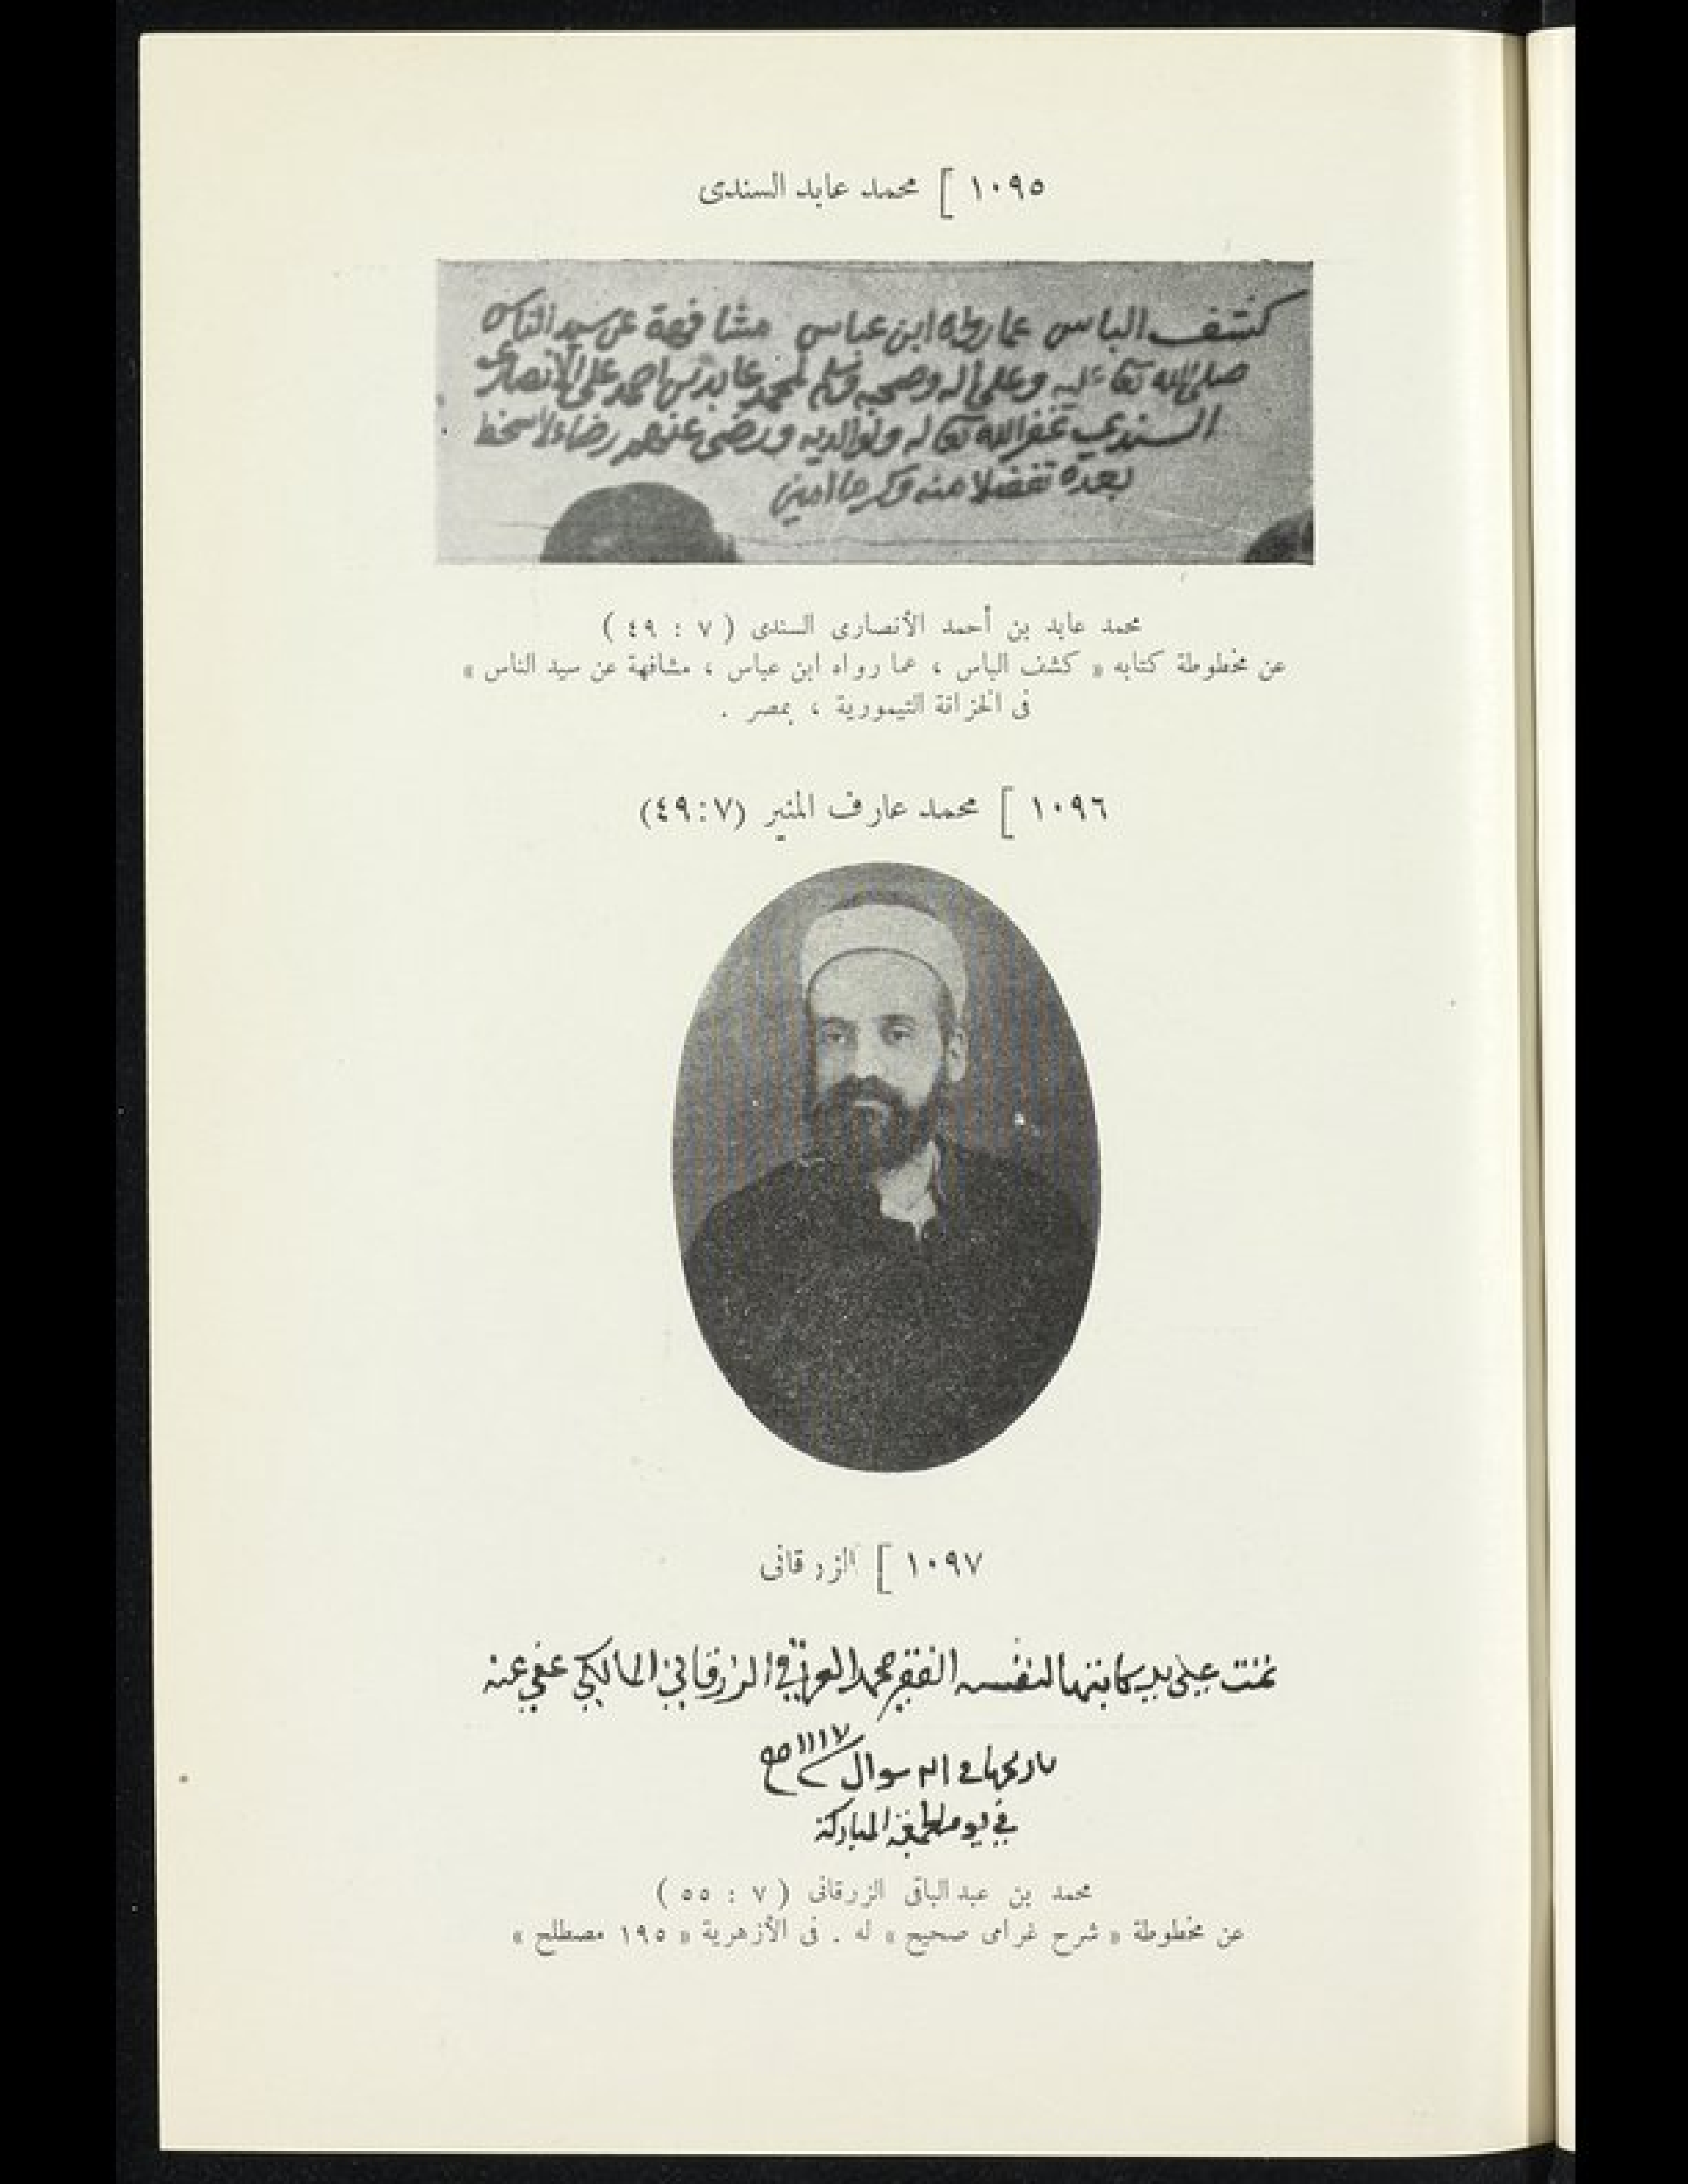 ١٠٩٥ [ محمد عابد السندى
كشف الباس عما رواه ابن عباس مشافهة عن سيد الناس
صلى الله تعالى عليه وعلى اله وصحبه وسلم لمحمد عابد بن احمد على الانصارى
السندي غفر الله تعالى له ولوالديه ورضى عنهم رضاء لا سخط
بعده تفضلا منه وكرما امين
محمد عابد بن أحمد الأنصارى السندى ( ٧ : ٤٩ )
عن مخطوطة كتابه « كشف الباس ، عما رواه ابن عباس ، مشافهة عن سيد الناس »
فى الخزانة التيمورية ، بمصر .
١٠٩٦ [ محمد عارف المنير (٧:٤٩)
١٠٩٧ [ الزرقانى
تمت على يد كاتبها لنفسه الفقير محمد الزرقاني المالكي عفي عنه
شوال ١١١٧
في يوم المباركة
محمد بن عبد الباقى الزرقانى ( ٧ : ٥٥ )
عن مخطوطة « شرح غرامى صحيح » له . فى الأزهرية « ١٩٥ مصطلح »